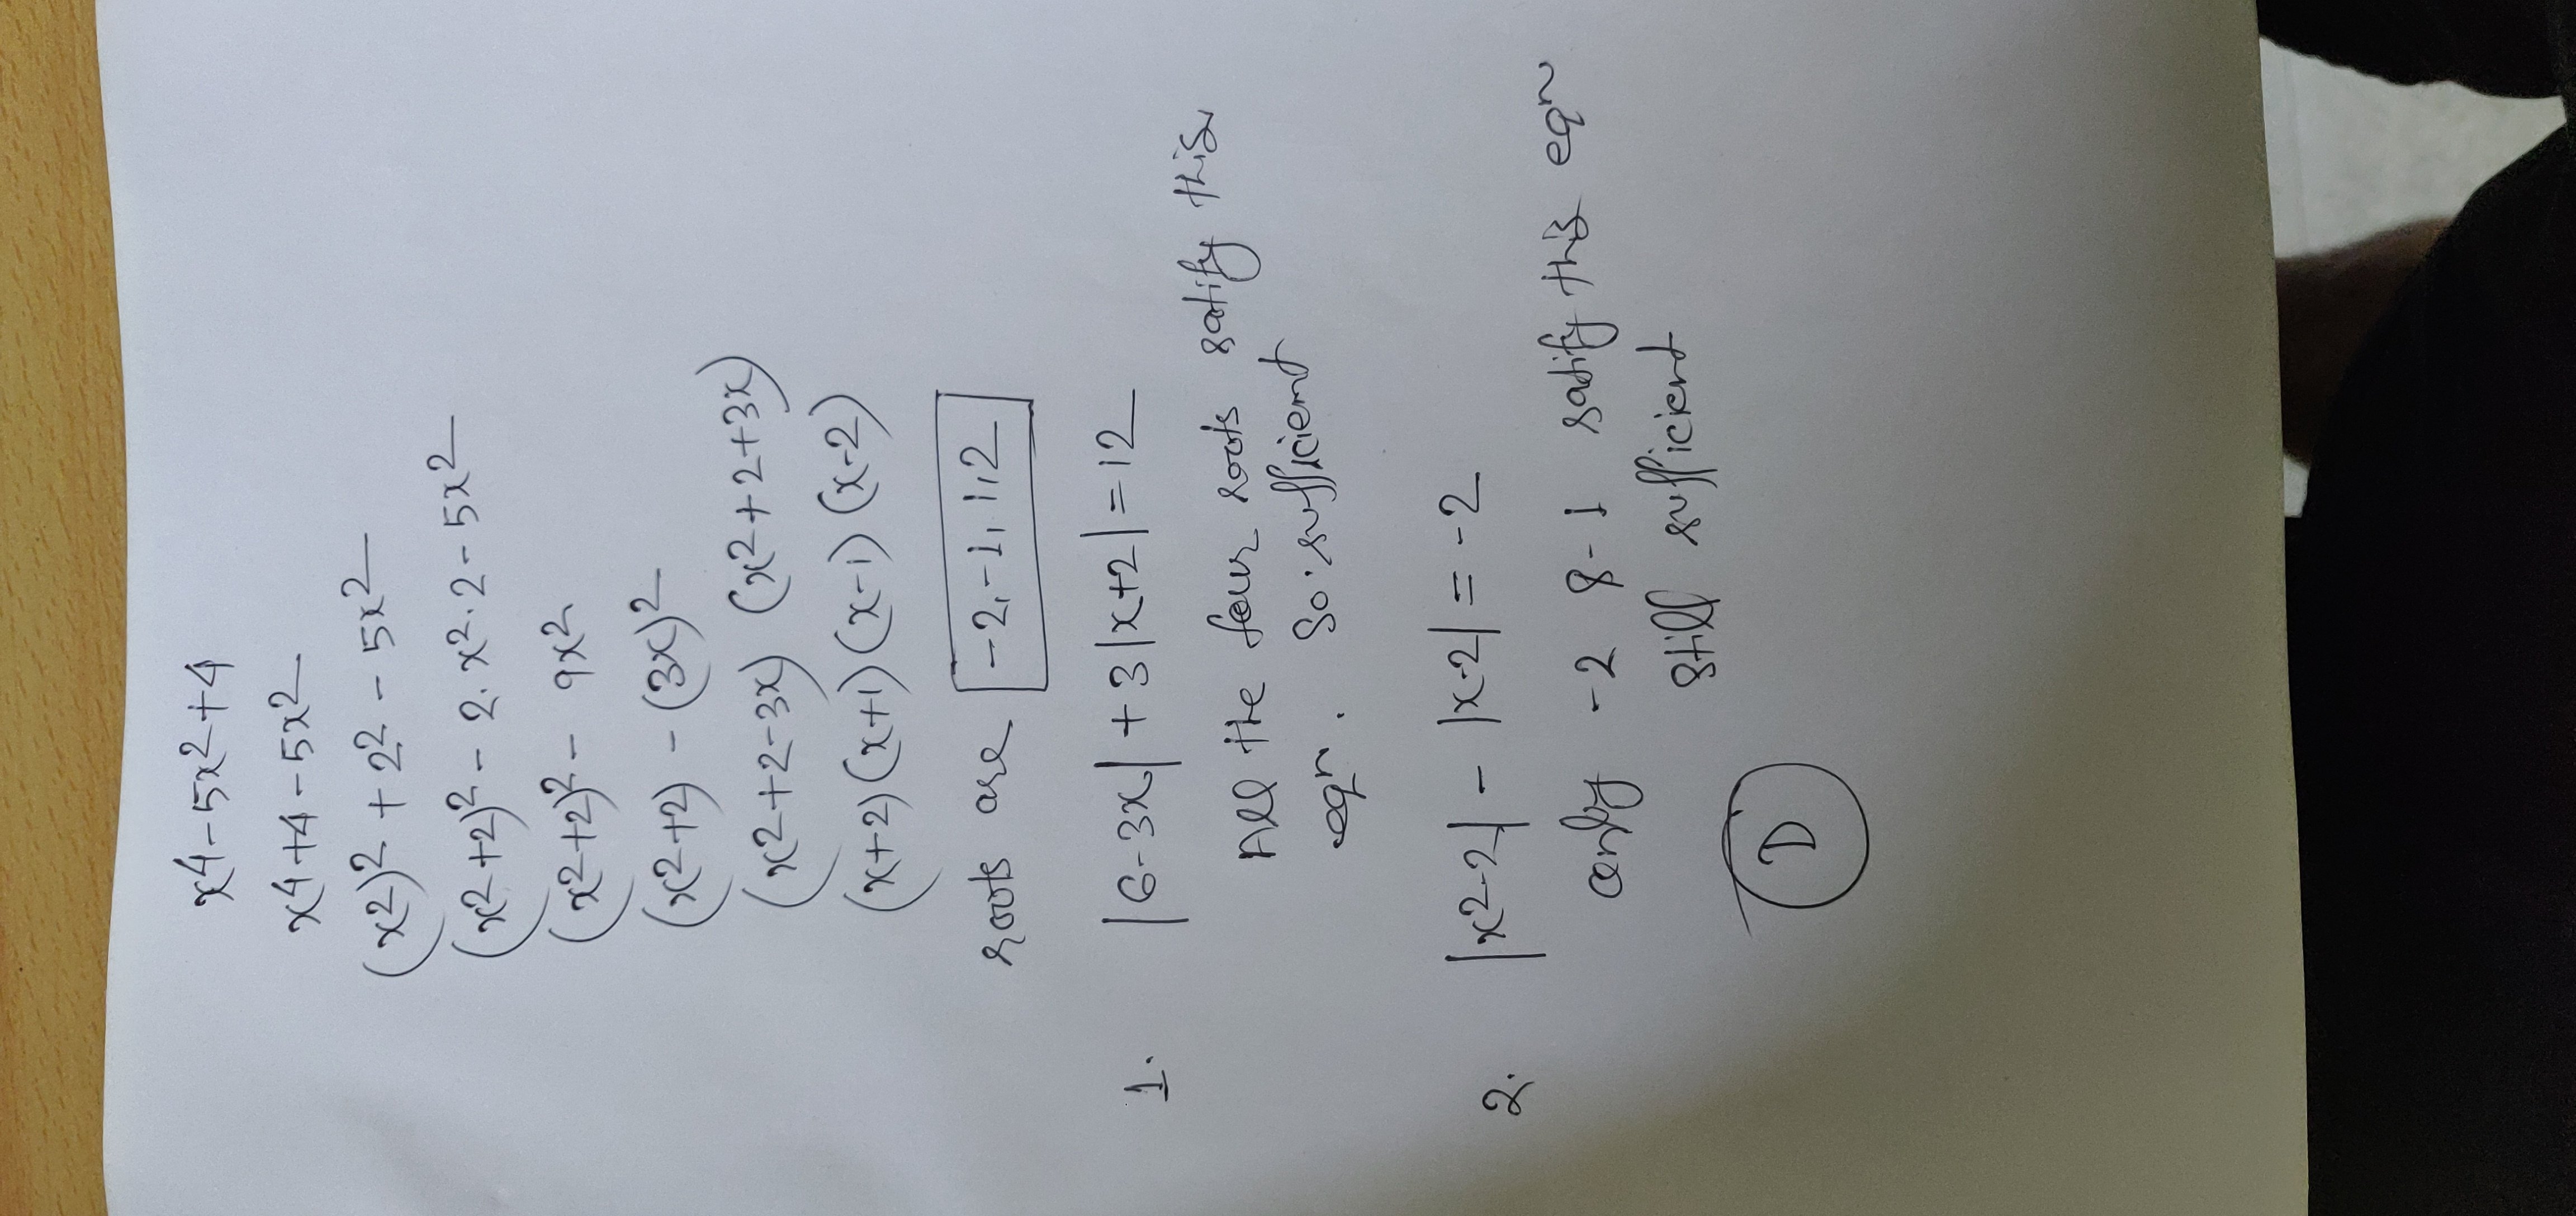 x⁴-5x²+4
x⁴+4-5x²
(x²)²+2²-5x²
(x²+2)²-2·x²·2-5x²
(x²+2)²-9x²
(x²+2)-(3x)²
(x²+2-3x)(x²+2+3x)
(x+2)(x+1)(x-1)(x-2)
roots are -2,-1,1,2
1. |6-3x|+3|x+2|=12
All the four roots satify this
eqn. So sufficient
2. |x²-2|-|x-2|=-2
only -2 & -1 satify this eqn
still sufficient
D